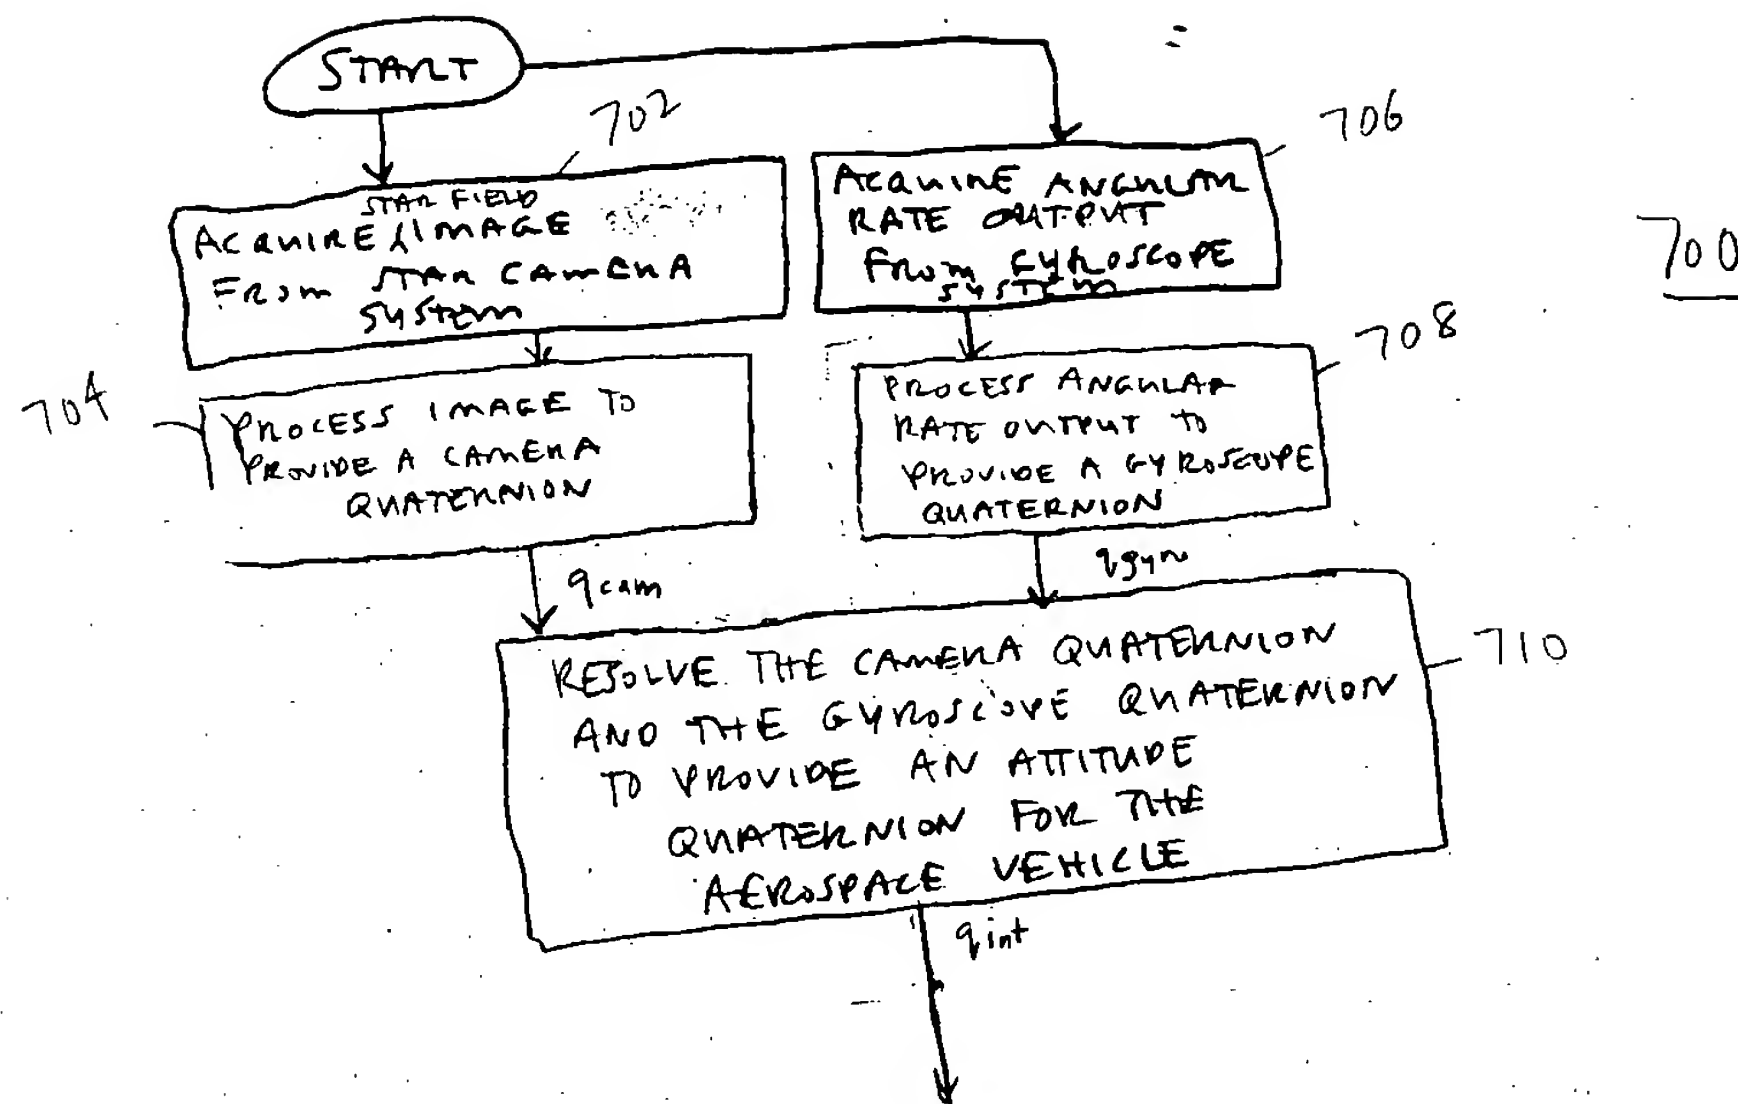 START
702
706
STAR FIELD
ACQUIRE IMAGE
FROM STAR CAMERA
SYSTEM
ACQUIRE ANGULAR
RATE OUTPUT
FROM GYROSCOPE
SYSTEM
700
704
PROCESS IMAGE TO
PROVIDE A CAMERA
QUATERNION
708
PROCESS ANGULAR
RATE OUTPUT TO
PROVIDE A GYROSCOPE
QUATERNION
qcam
qgyr
RESOLVE THE CAMERA QUATERNION
AND THE GYROSCOPE QUATERNION
TO PROVIDE AN ATTITUDE
QUATERNION FOR THE
AEROSPACE VEHICLE
710
qint